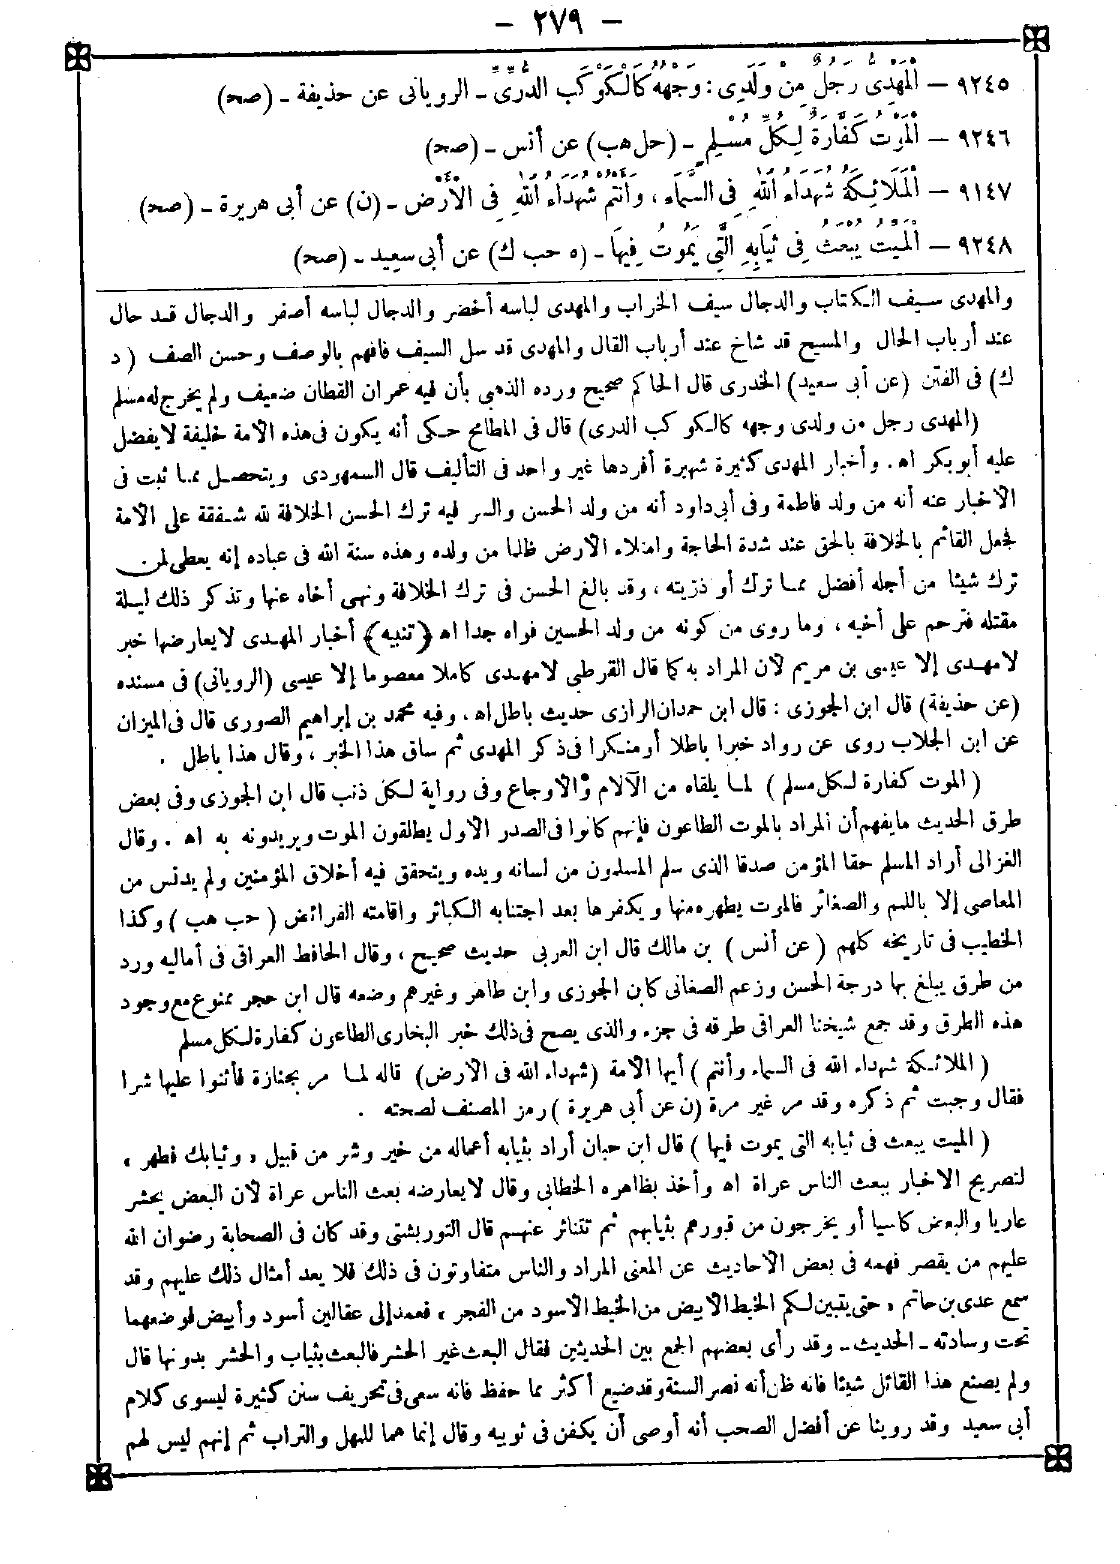 - ٢٧٩ -
٩٢٤٥ — الْمَهْدِىُّ رَجُلٌ مِنْ وَلَدِى : وَجْهُهُ كَالْكَوْكَبِ الدُّرِّىِّ - الرويانى عن حذيفة - (صح)
٩٢٤٦ — الْمَوْتُ كَفَّارَةٌ لِكُلِّ مُسْلِمٍ - (حل هب) عن أنس - (صح)
٩١٤٧ — الْمَلَائِكَةُ شُهَدَاءُ اللهِ فِى السَّمَاءِ ، وَأَنْتُمْ شُهَدَاءُ اللهِ فِى الْأَرْضِ - (ن) عن أبى هريرة - (صح)
٩٢٤٨ — الْمَيِّتُ يُبْعَثُ فِى ثِيَابِهِ الَّتِى يَمُوتُ فِيهَا - (ه حب ك) عن أبى سعيد - (صح)
والمهدى سيف الكتاب والدجال سيف الخراب والمهدى لباسه أخضر والدجال لباسه أصفر والدجال قد حال
عند أرباب الحال والمسيح قد شاخ عند أرباب القال والمهدى قد سل السيف فافهم بالوصف وحسن الصف ( د
ك) فى الفتن (عن أبى سعيد) الخدرى قال الحاكم صحيح ورده الذهبى بأن فيه عمران القطان ضعيف ولم يخرج له مسلم
(المهدى رجل من ولدى وجهه كالكوكب الدرى) قال فى المطامح حكى أنه يكون فى هذه الأمة خليفة لا يفضل
عليه أبو بكر اه. وأخبار المهدى كثيرة شهيرة أفردها غير واحد فى التأليف قال السمهودى ويتحصل مما ثبت فى
الأخبار عنه أنه من ولد فاطمة وفى أبى داود أنه من ولد الحسن والسر فيه ترك الحسن الخلافة لله شفقة على الأمة
فجعل القائم بالخلافة بالحق عند شدة الحاجة وامتلاء الأرض ظلما من ولده وهذه سنة الله فى عباده إنه يعطى لمن
ترك شيئا من أجله أفضل مما ترك أو ذريته ، وقد بالغ الحسن فى ترك الخلافة ونهى أخاه عنها وتذكر ذلك ليلة
مقتله فترحم على أخيه ، وما روى من كونه من ولد الحسين فواه جدا اه (تنبيه) أخبار المهدى لا يعارضها خبر
لا مهدى إلا عيسى بن مريم لأن المراد به كما قال القرطبى لا مهدى كاملا معصوما إلا عيسى (الرويانى) فى مسنده
(عن حذيفة) قال ابن الجوزى : قال ابن حمدان الرازى حديث باطل اه ، وفيه محمد بن إبراهيم الصورى قال فى الميزان
عن ابن الجلاب روى عن رواد خبرا باطلا أو منكرا فى ذكر المهدى ثم ساق هذا الخبر ، وقال هذا باطل .
( الموت كفارة لكل مسلم ) لما يلقاه من الآلام والأوجاع وفى رواية لكل ذنب قال ابن الجوزى وفى بعض
طرق الحديث ما يفهم أن المراد بالموت الطاعون فإنهم كانوا فى الصدر الأول يطلقون الموت ويريدونه به اه . وقال
الغزالى أراد المسلم حقا المؤمن صدقا الذى سلم المسلمون من لسانه ويده ويتحقق فيه أخلاق المؤمنين ولم يدنس من
المعاصى إلا باللمم والصغائر فالموت يطهره منها ويكفرها بعد اجتنابه الكبائر وإقامته الفرائض ( حب هب ) وكذا
الخطيب فى تاريخه كلهم ( عن أنس ) بن مالك قال ابن العربى حديث صحيح ، وقال الحافظ العراقى فى أماليه ورد
من طرق يبلغ بها درجة الحسن وزعم الصغانى كابن الجوزى وابن طاهر وغيرهم وضعه قال ابن حجر ممنوع مع وجود
هذه الطرق وقد جمع شيخنا العراقى طرقه فى جزء والذى يصح فى ذلك خبر البخارى الطاعون كفارة لكل مسلم
( الملائكة شهداء الله فى السماء وأنتم ) أيها الأمة (شهداء الله فى الأرض) قاله لما مر بجنازة فأثنوا عليها شرا
فقال وجبت ثم ذكره وقد مر غير مرة (ن عن أبى هريرة ) رمز المصنف لصحته .
( الميت يبعث فى ثيابه التى يموت فيها ) قال ابن حبان أراد بثيابه أعماله من خير وشر من قبيل « وثيابك فطهر »
لتصريح الأخبار ببعث الناس عراة اه وأخذ بظاهره الخطابى وقال لا يعارضه بعث الناس عراة لأن البعض يحشر
عاريا والبعض كاسيا أو يخرجون من قبورهم بثيابهم ثم تتناثر عنهم قال التوربشتى وقد كان فى الصحابة رضوان الله
عليهم من يقصر فهمه فى بعض الأحاديث عن المعنى المراد والناس متفاوتون فى ذلك فلا يعد أمثال ذلك عليهم وقد
سمع عدى بن حاتم « حتى يتبين لكم الخيط الأبيض من الخيط الأسود من الفجر » فعمد إلى عقالين أسود وأبيض فوضعهما
تحت وسادته - الحديث - وقد رأى بعضهم الجمع بين الحديثين فقال البعث غير الحشر فالبعث بثياب والحشر بدونها قال
ولم يصنع هذا القائل شيئا فانه ظن أنه نصر السنة وقد ضيع أكثر مما حفظ فانه سعى فى تحريف سنن كثيرة ليسوى كلام
أبى سعيد وقد روينا عن أفضل الصحب أنه أوصى أن يكفن فى ثوبيه وقال إنما هما للمهل والتراب ثم إنهم ليس لهم